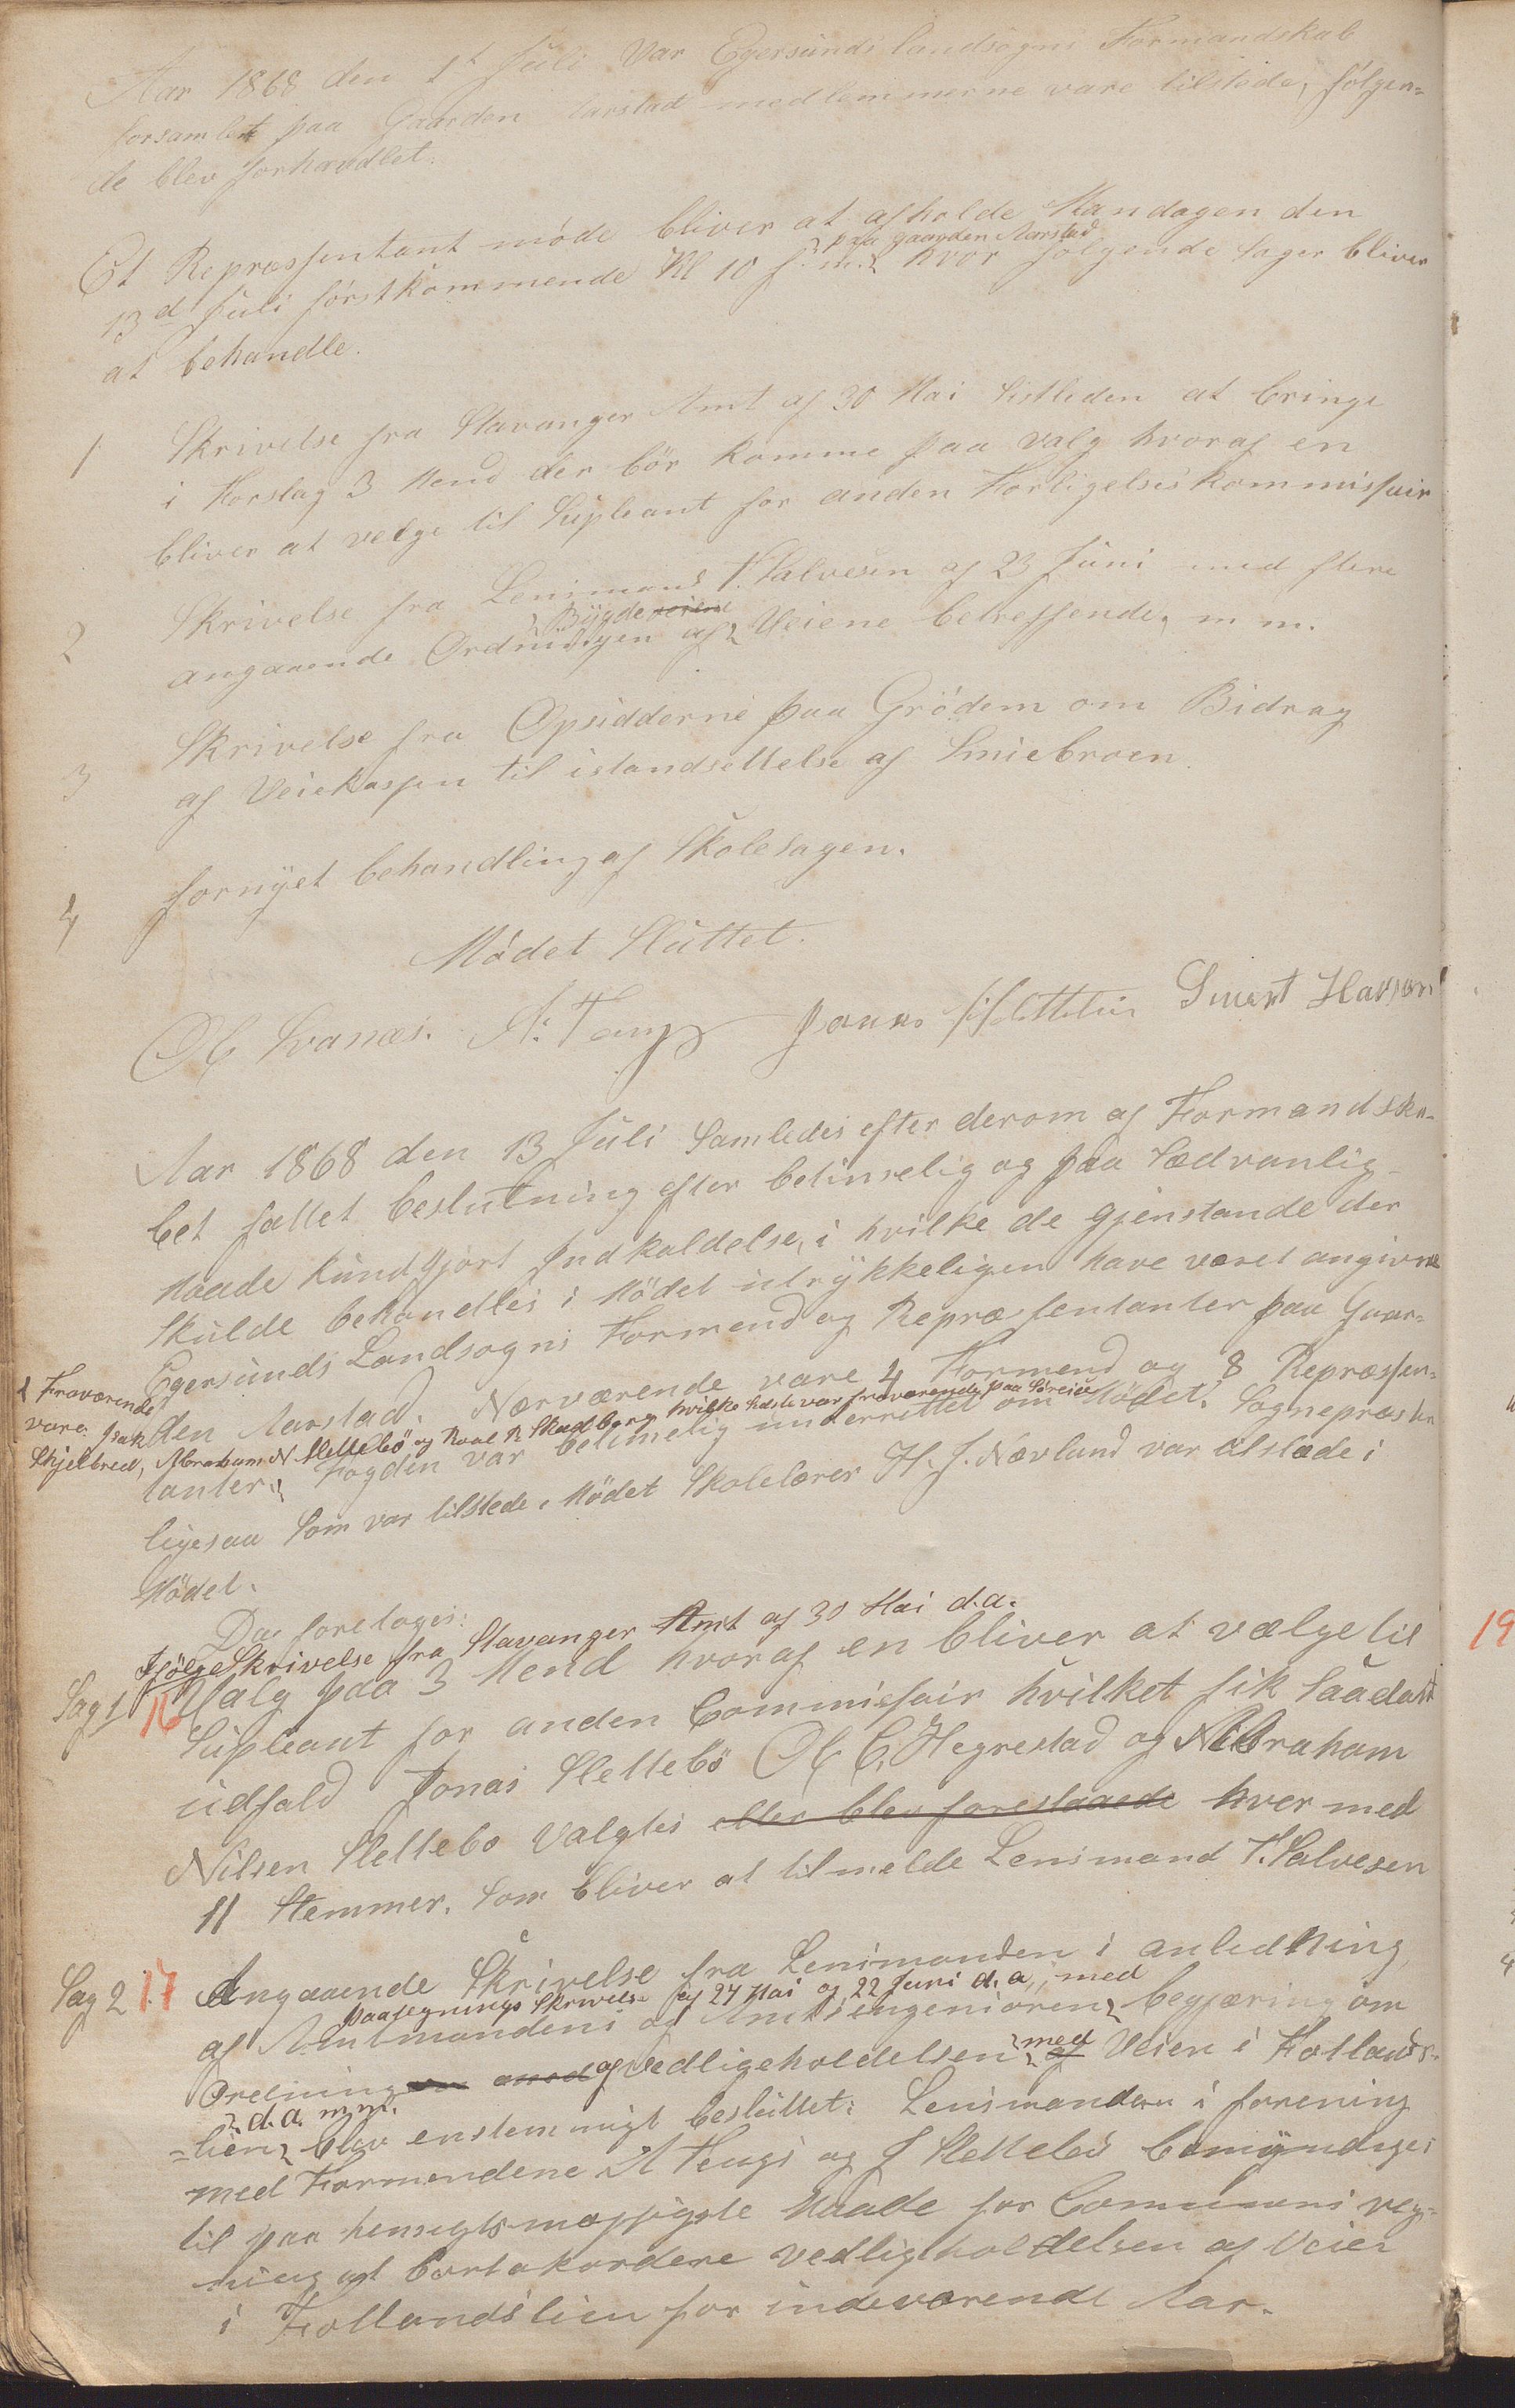 Aar 1868 den 1t Juli var Egersunds landsogns Formandskab
forsamlet paa Gaarden Aarstad medlemmerne vare tilstede, følgen-
de blev forhandlet.
Et Repræssentant møde bliver at afholde Mandagen den
paa gaarden Aarstad
13d Juli førstkommende Kl 10 f.m. hvor følgende Sager bliver
at behandle.
1 Skrivelse fra Stavanger Amt af 30 Mai sistleden at bringe
i Forslag 3 Mend der bør komme paa valg hvoraf en
bliver at velge til Supleant for anden Forligelseskommissair
2 Skrivelse fra Lensmand T. Salvesen af 23 Juni med flere
Bygdeveiene
angaaende Ordningen af Veiene betreffende, m m.
3 Skrivelse fra Opsidderne paa Grødem om Bidrag
af Veiekassen til istandsettelse af Smiebroen.
4 fornyet behandling af Skolesagen.
Mødet Sluttet.
Ol Svanæs. A. Tengs Jonas Slettebø Sivert Havsøe
Aar 1868 den 13 Juli Samledes efter derom af Formandska-
bet fattet beslutning efter betimelig og paa Sædvanlig
Maade kundgjort Indkaldelse, i hvilke de gjenstande der
skulde behandles i Mødet utrykkeligen have været angivne
Egersunds Landsogns Formend og Repræsentanter paa Gaar-
den Aarstad. Nærværende vare 4 Formend og 8 Repræssen-
Fraværende
vare. Isak
Skjelbred, Abraham N Slettebø og Roal R Skadberg hvilke sidste var fraværende paa Søreise
tanter. Fogden var betimelig underrettet om Mødet. Sognepræsten
ligesaa Som var tilstede, Mødet Skolelærer H. J. Nævland var tilstæde i
Mødet.
Da foretoges:
Ifølge Skrivelse fra Stavanger Amt af 30 Mai d.a.
Sag 1 16 Valg paa 3 Mend hvoraf en bliver at vælge til
Supleant for anden Commissair hvilket fik Saadant
udfald Jonas Slettebø Ol C. Hegrestad og Abraham
Nilsen Slettebø Valgtes eller blev foreslaaede hver med
11 Stemmer. Som bliver at tilmelde Lensmand T. Salvesen
Sag 2 17 Angaaende Skrivelse fra Lensmanden i anledning
paategnings Skrivelse af 27 Mai og 22 Juni d.a, med
af Amtmandens og Amtsingeniøren begjæring om
Ordning af vedligeholdelsen med af Veien i Fotlands-
d.a. m.m.
=lien blev enstemmigt besluttet: Lensmanden i forening
med Formendene A Tengs og J Slettebø bemyndiges
til paa hensigtsmæssigste Maade for Communens veg-
ning at bortakordere Vedligeholdelsen af Veien
i Fotlandslien for indeværende Aar.
19